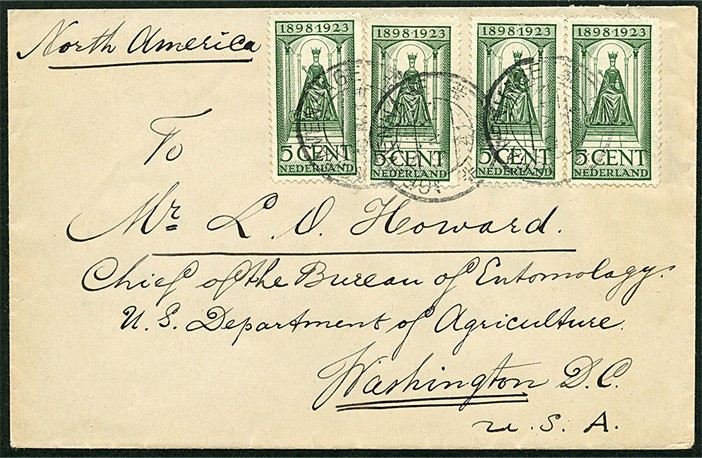 North America
1898·1923 1898·1923 1898·1923 1898·1923
5 CENT 5 CENT 5 CENT 5 CENT
NEDERLAND NEDERLAND NEDERLAND NEDERLAND
To
Mr. L. O. Howard.
Chief of the Bureau of Entomology.
U. S. Department of Agriculture.
Washington D.C.
U. S. A.